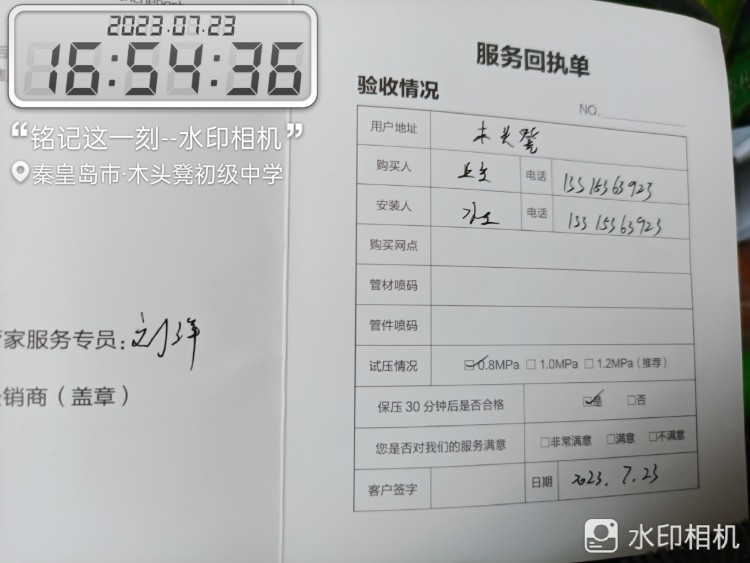 2023.07.23
16:54:36
“铭记这一刻--水印相机”
秦皇岛市·木头凳初级中学
家服务专员：刘洋
销商（盖章）
服务回执单
验收情况
NO.
用户地址 木头凳
购买人 业主 电话 13315363923
安装人 水工 电话 13315363923
购买网点
管材喷码
管件喷码
试压情况 ☑0.8MPa □1.0MPa □1.2MPa（推荐）
保压30分钟后是否合格 ☑是 □否
您是否对我们的服务满意 □非常满意 □满意 □不满意
客户签字 日期 2023.7.23
水印相机